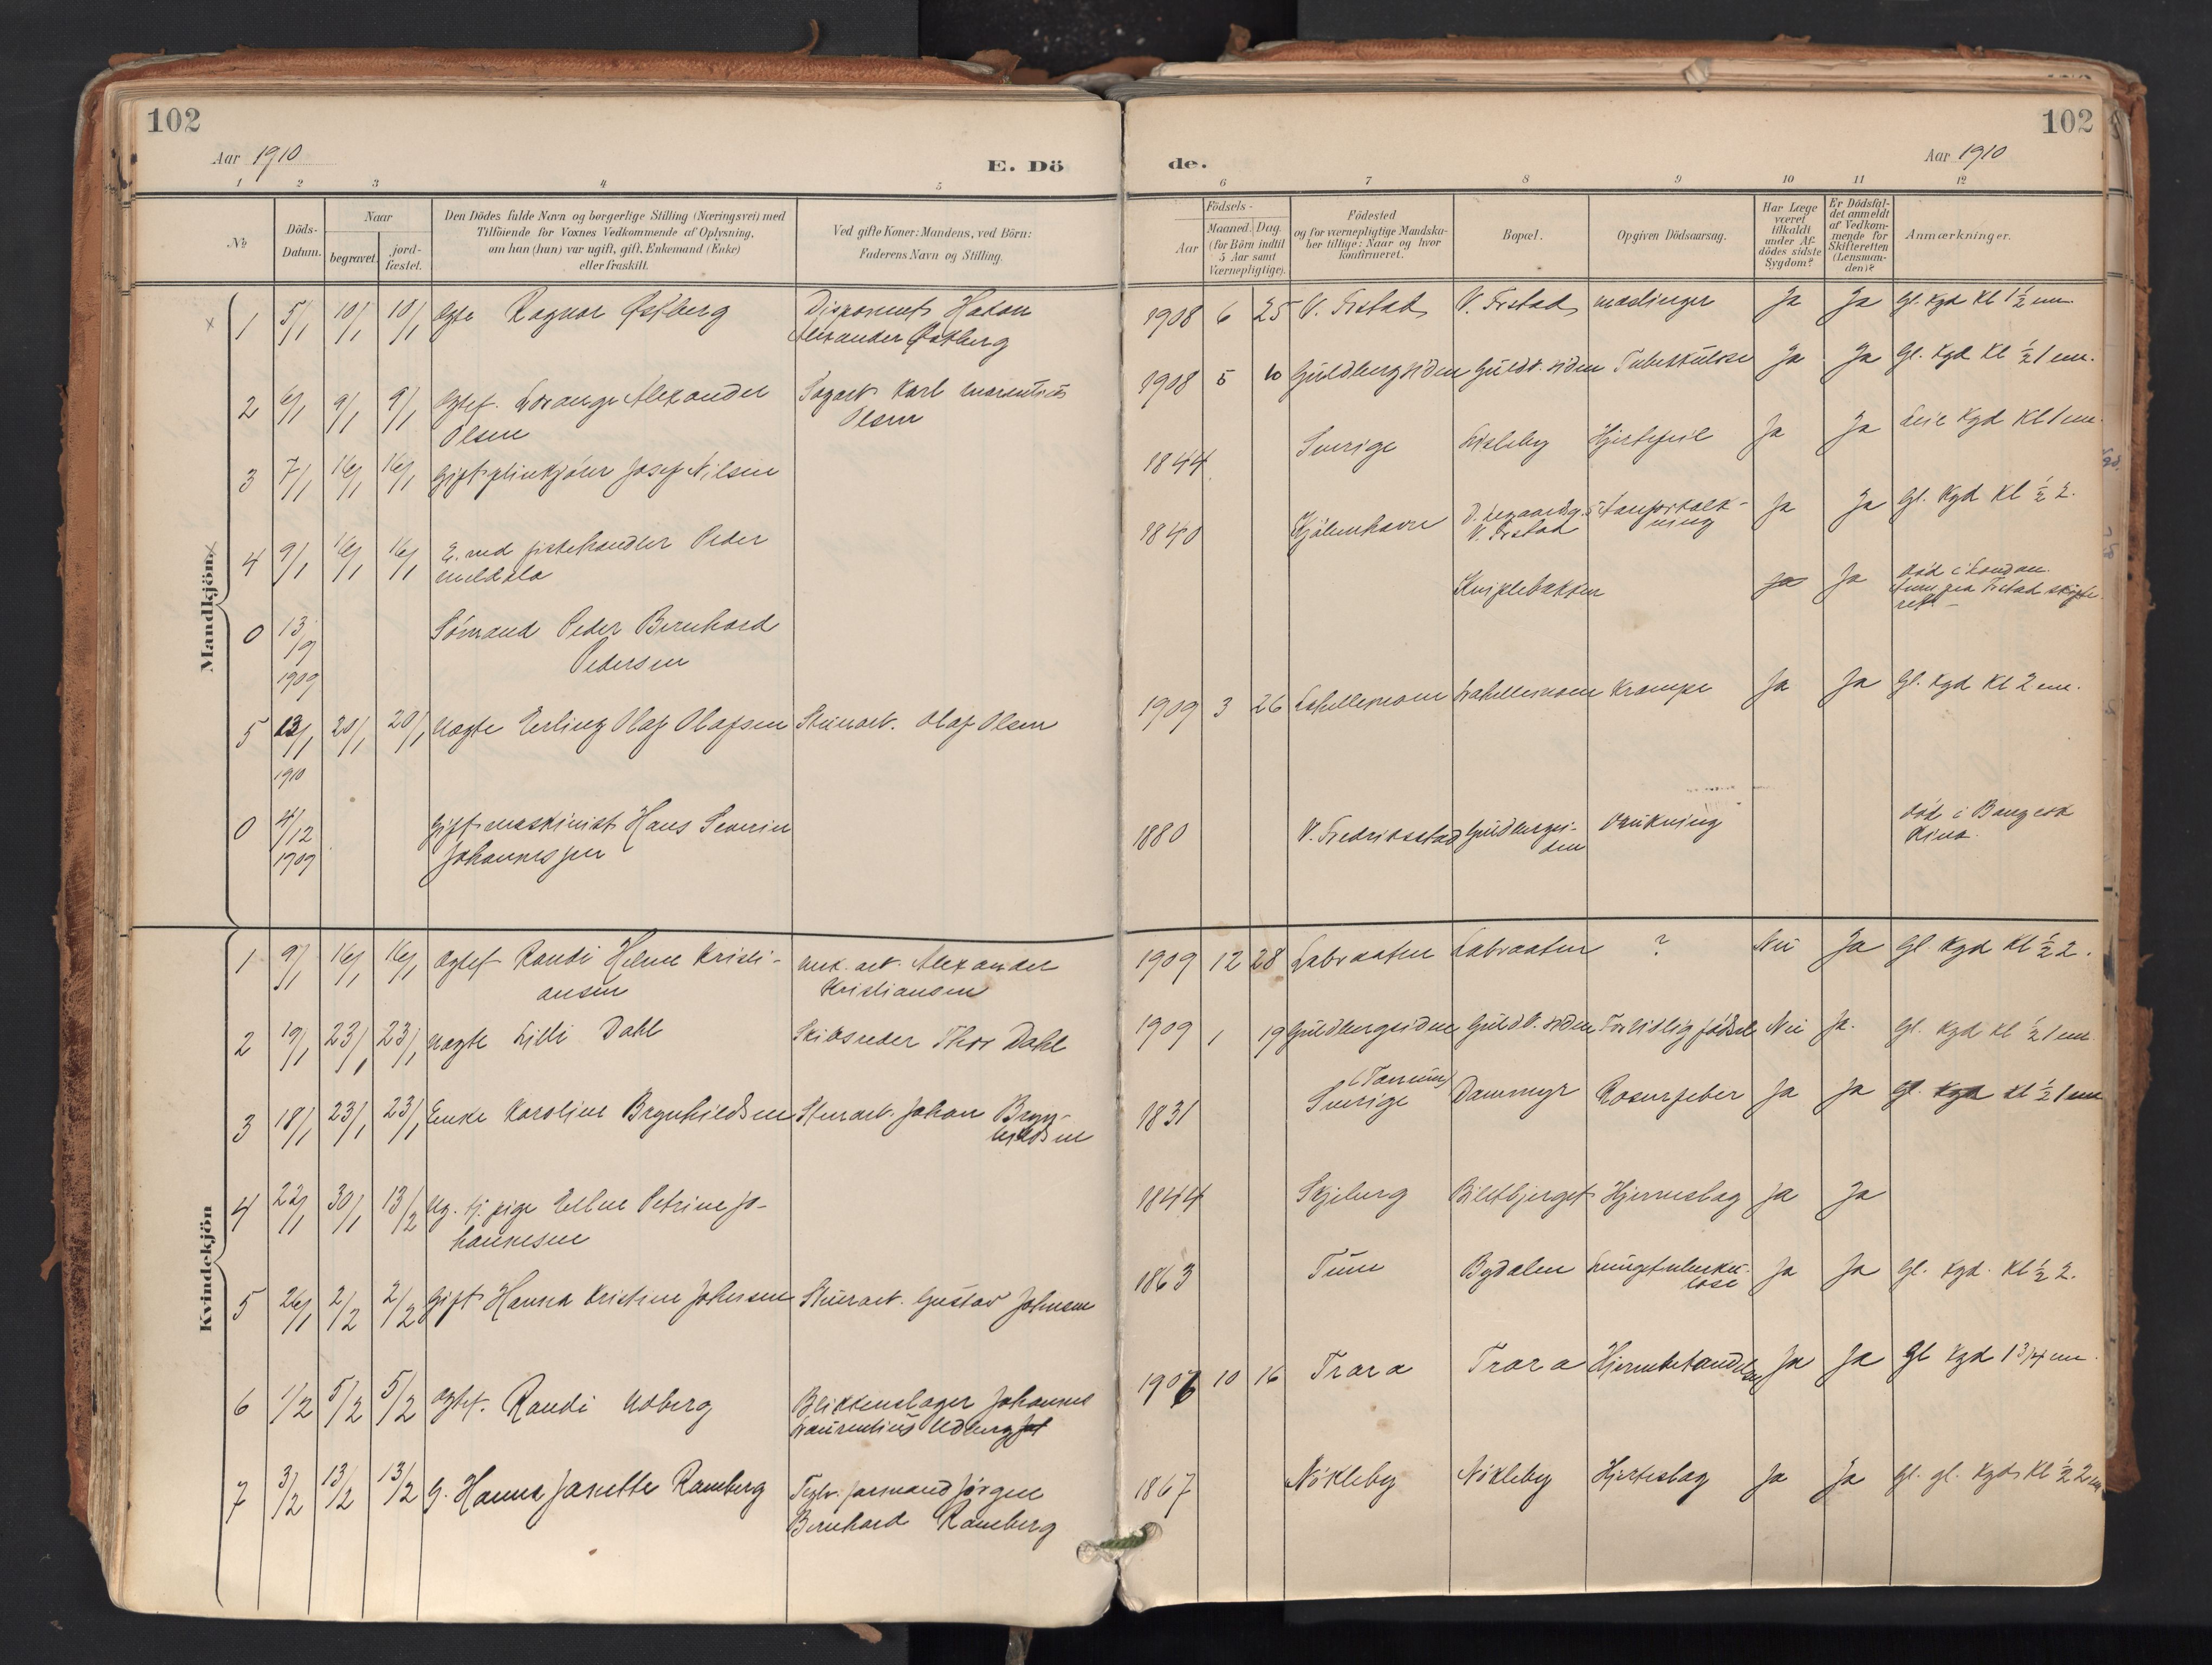 102
Aar 1910
E. Dö
1 2 3 4 5
№
Döds-
Datum.
Naar
begravet.
jord-
fæstet.
Den Dödes fulde Navn og borgerlige Stilling (Næringsvei) med
Tilföiende for Voxnes Vedkommende af Oplysning,
om han (hun) var ugift, gift, Enkemand (Enke)
eller fraskilt.
Ved gifte Koner: Mandens, ved Börn:
Faderens Navn og Stilling.
Mandkjön
1 5/1 10/1 10/1 Ragnar Østberg Disponent Hakon
Alexander Østberg
2 6/1 9/1 9/1 Ægtef. Alexander Karl
Olsen Olsen
3 7/1 16/1 16/1 Gift Josef Nilsen
4 9/1 16/1 16/1 fiskehandler Peder
0 13/9 Sømand Peder Bernhard
Pedersen
1909
5 13/1 20/1 20/1 uægte Erling Olaf Olafsen Olaf Olsen
1910
0 4/12 Gift maskinist Hans Severin
1909 Johannessen
Kvindekjön
1 9/1 16/1 16/1 Ægtef Randi Helene Kristi-
ansen
Alexander
Kristiansen
2 19/1 23/1 23/1 uægte Lilli Dahl Skibsreder Thor Dahl
3 18/1 23/1 23/1 Enke Karoline Brynhildsen Johan Bryn-
hildsen
4 22/1 30/1 13/2 Ug. tj. pige Petrine Jo-
hannesen
5 26/1 2/2 2/2 Gift Hanna Kristine Johnsen Gustav Johnsen
6 1/2 5/2 5/2 Ægtef. Randi Udberg Blikkenslager Johannes
Laurentius Udberg
7 3/2 13/2 13/2 G. Hanna Janette Ramberg formand Jørgen
Bernhard Ramberg
102
Aar 1910
de.
6 7 8 9 10 11 12
Födsels-
Aar
Maaned. Dag.
(for Börn indtil
5 Aar samt
Værnepligtige).
Födested
og for værnepligtige Mandska-
ber tillige: Naar og hvor
konfirmeret.
Bopæl.
Opgiven Dödsaarsag.
Har Læge
været
tilkaldt
under Af-
dödes sidste
Sygdom?
Er Dödsfal-
det anmeldt
af Vedkom-
mende for
Skifteretten
(Lensman-
den)?
Anmærkninger.
1908 6 25 V. Frstad V. Frstad mæslinger Ja Ja Gl. Kgd Kl 1½ em
1908 5 10 Guldbergsiden Guldb. siden Tuberkulose Ja Ja Gl. Kgd Kl ½ 1 em.
1844 Sverige Lisleby Hjertefeil Ja Ja Leie Kgd Kl 1 em.
1840 Kjöbenhavn V. Frstad Ja Ja Gl. Kgd Kl ½ 2.
Kniplebakken Ja Ja död i London.
Frstad skifte-
ret
1909 3 26 Krampe Ja Ja Gl. Kgd Kl 2 em.
1880 V. Fredriksstad Guldbergsi-
den
Drukning död i
Kina.
1909 12 28 Labraaten Labraaten ? Nei Ja Gl. Kgd Kl ½ 2.
1909 1 19 Guldbergsiden Guldb. siden For tidlig fødsel Nei Ja. Gl. Kgd Kl ½ 1 em.
(Tanum)
1831 Sverige Dammyr Rosenfeber Ja Ja Gl. Kgd Kl ½ 1 em
1844 Skjeberg Hjerneslag Ja Ja
1863 Tune Bydalen Lungetuberku-
lose
Ja Ja Gl. Kgd. Kl ½ 2.
1906 10 16 Trara Trara Ja Ja Gl Kgd 1 3/4 em.
1867 Nökleby Nökleby Hjerteslag Ja Ja Gl. gl. Kgd. Kl ½ 2 em